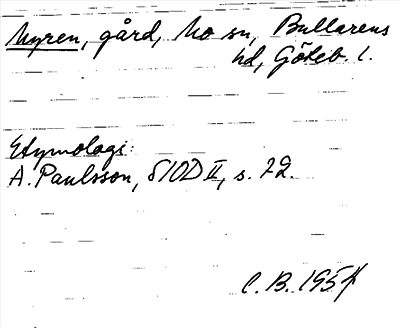 Myren, gård, Mo sn, Bullarens
hd, Göteb. l.
Etymologi:
A. Paulsson, SIOD II, s. 72.
C. B. 1957